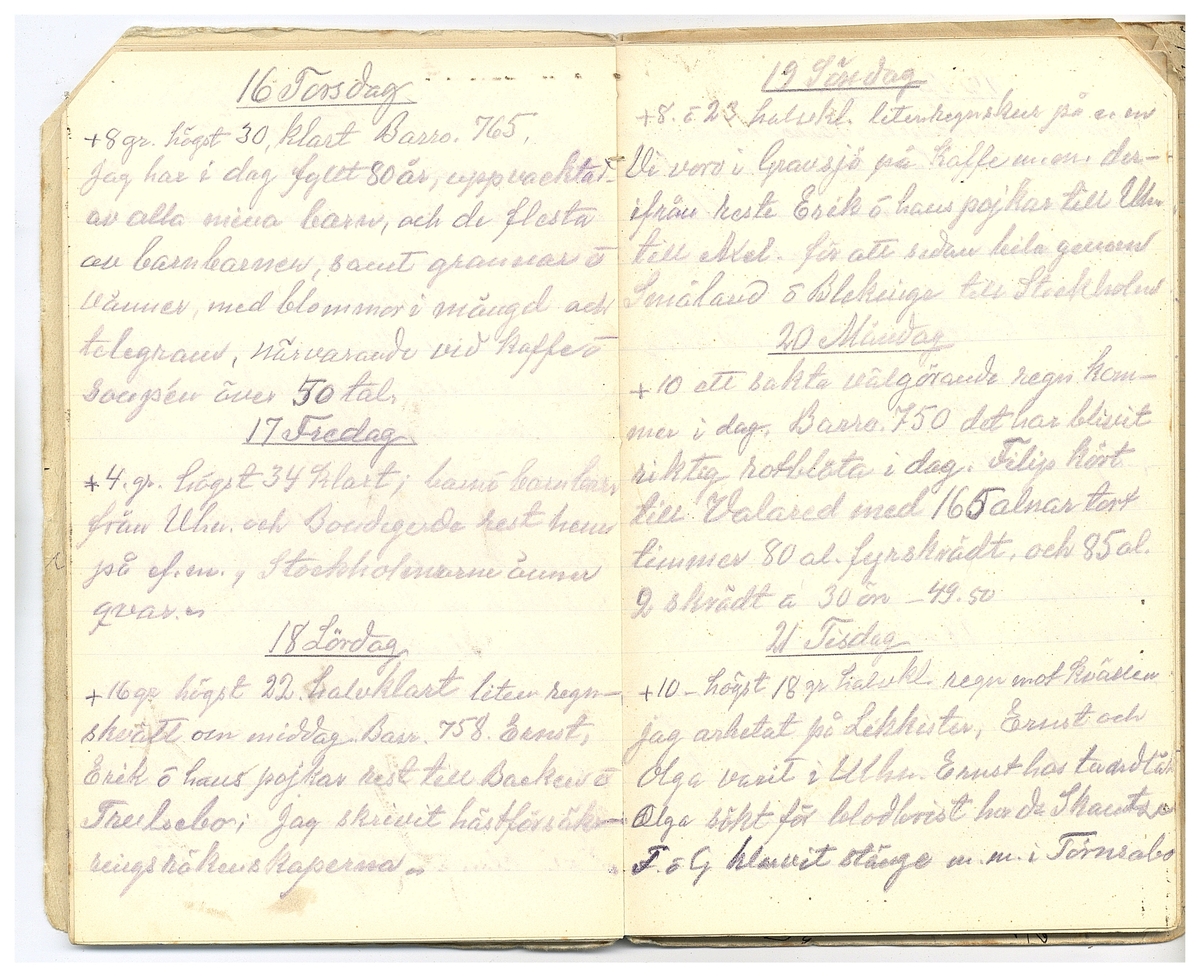 16 Torsdag
+8 gr. högst 30, klart Barro. 765.
Jag har i dag fyllt 80 år, uppvacktad
av alla mina barn, och de flesta
av barnbarnen, samt grannar o
vänner, med blommor i mängd och
telegram, närvarande vid kaffe o
soupén över 50 tal.
17 Fredag
+4. gr. högst 34 klart, barn o barnbarn
från Uhn. och Bondegärde rest hem
på ef.m., Stockholmarne ännu
qvar.
18 Lördag
+16 gr högst 22. halvklart liten regn-
skvätt om middag Barr. 758. Ernst,
Erik o hans pojkar rest till Backen o
Trulsebo; Jag skrivit hästförsäk-
ringsräkenskaperna.
19 Söndag
+8. o 23 halvkl. liten regnskur på e. m
Vi voro i Gravsjö på Kaffe m.m. der-
ifrån reste Erik o hans pojkar till Uhn
till Axel. för att sedan bila genom
Småland o Blekinge till Stockholm
20 Måndag
+10 ett sakta välgörande regn kom-
mer i dag. Barro. 750 det har blivit
riktig rotblöta i dag. Filip kört
till Valared med 165 alnar tort
timmer 80 al. fyrskrädt, och 85 al.
2 skrädt a 30 ör - 49.50
21 Tisdag
+10 - högst 18 gr halvkl. regn mot kvällen
Jag arbetat på Likkistor, Ernst och
Olga varit i Ulhn. Ernst has tandläk
Olga sökt för blodbrist ho dr
F. o G kluvit stänge m.m. i Törnsabo